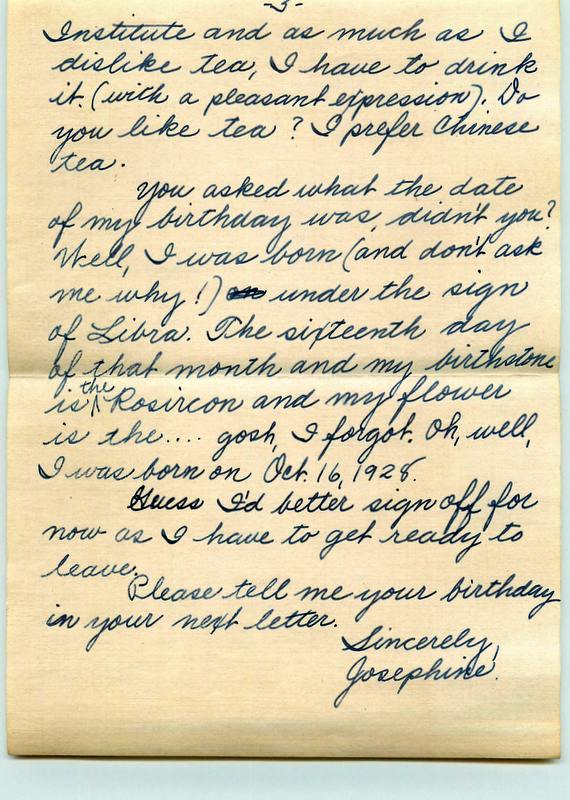 -3-
Institute and as much as I
dislike tea, I have to drink
it. (with a pleasant expression). Do
you like tea? I prefer Chinese
tea.
You asked what the date
of my birthday was, didn't you?
Well, I was born (and don't ask
me why!) on under the sign
of Libra. The sixteenth day
of that month and my birthstone
is the Rosircon and my flower
is the.... gosh, I forgot. Oh, well,
I was born on Oct. 16, 1928.
Guess I'd better sign off for
now as I have to get ready to
leave.
Please tell me your birthday
in your next letter.
Sincerely,
Josephine.